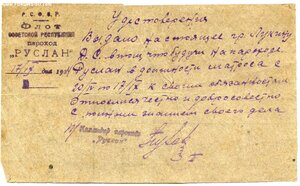 Р. С. Ф. С. Р.
ФЛОТ
СОВЕТСКОЙ РЕСПУБЛИКИ
пароход
„РУСЛАН“
17/IX дня 192
Удостоверение
Выдано настоящее гр. Лукину
А.С. в том что будучи на пароходе
Руслан в должности матроса с
20/IV по 17/IX к своим обязанностям
относился честно и добросовестно
с полным знанием своего дела
Командир парохода
"Руслан"